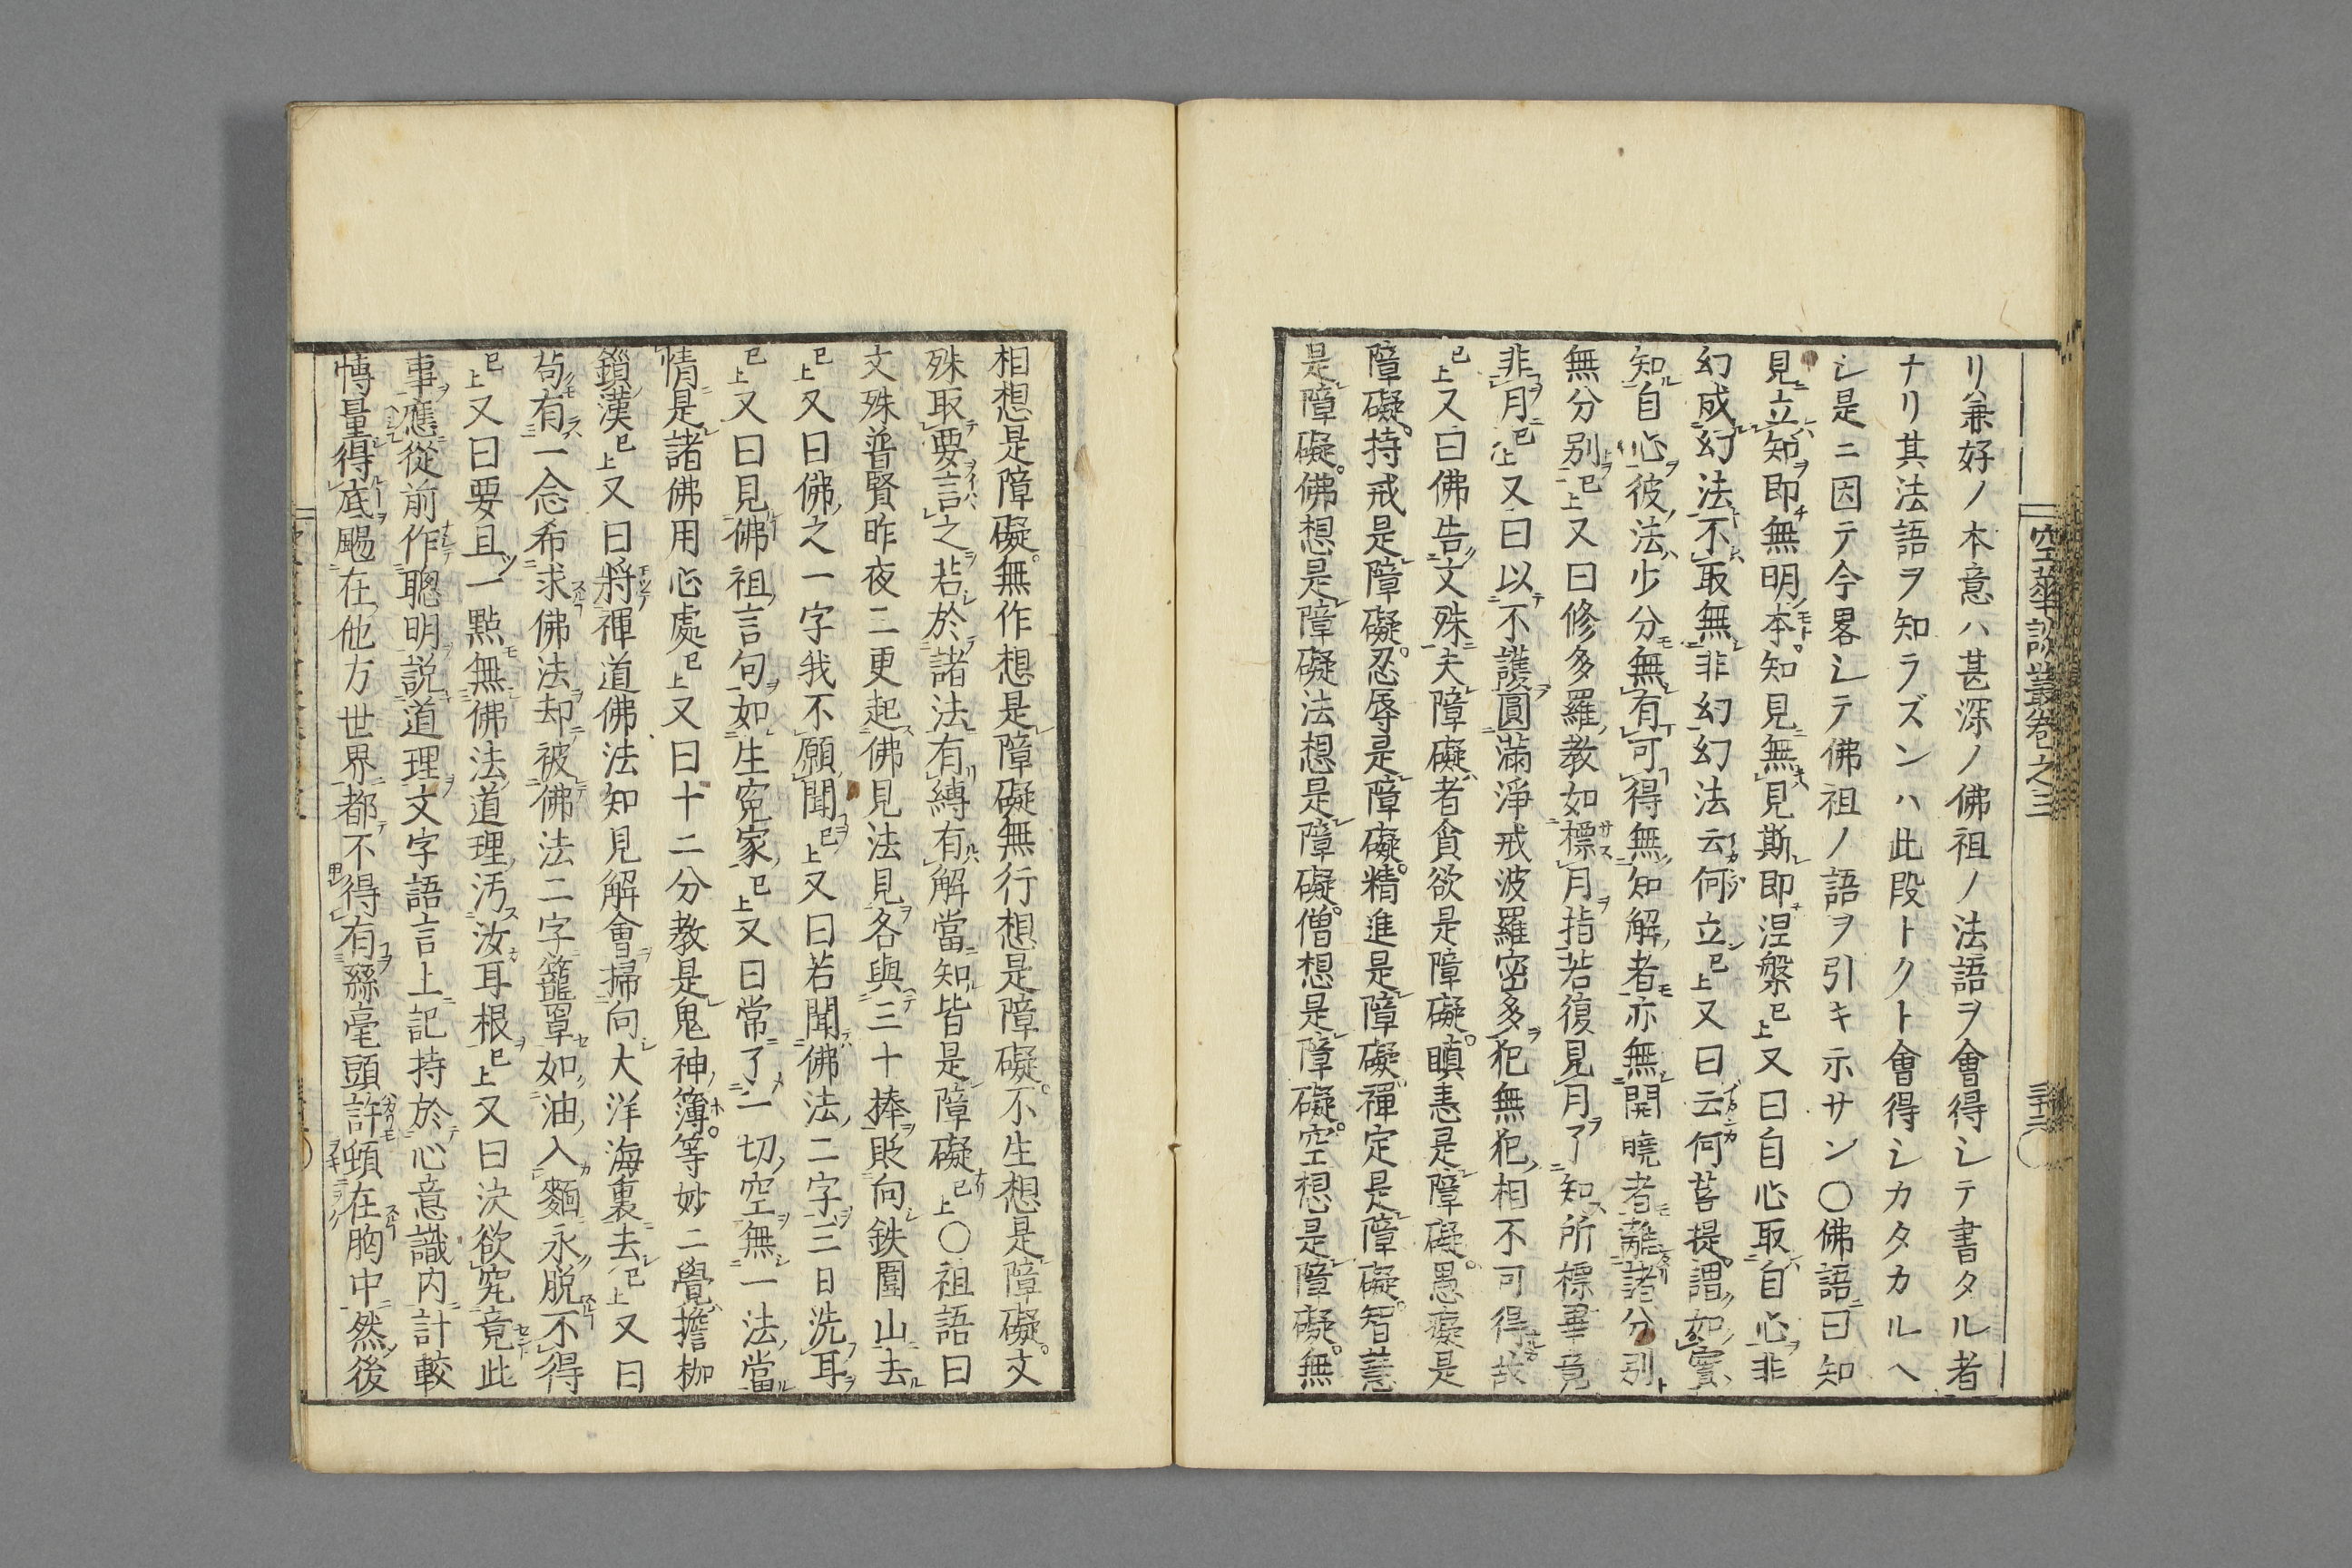 空華談叢卷之三
リハ兼好ノ本意ハ甚深ノ佛祖ノ法語ヲ會得シテ書タル者
ナリ其法語ヲ知ラズンハ此段トクト會得シカタカルヘ
シ是ニ因テ今畧シテ佛祖ノ語ヲ引キ示サン〇佛語曰知
見立知即無明本。知見無見斯即涅槃已上又曰自心取自心非
幻成幻法不取無非幻幻法云何立已上又曰云何菩提。謂如實
知自心彼法少分無有可得無知解者亦無開曉者離諸分別
無分別已上又曰修多羅教如標月指若復見月了知所標畢竟
非月已上又曰以不護圓滿淨戒波羅密多犯無犯相不可得故
已上又曰佛告文殊夫障礙者貪欲是障礙。瞋恚是障礙。愚癡是
障礙。持戒是障礙。忍辱是障礙。精進是障礙禪定是障礙。智慧
是障礙。佛想是障礙法想是障礙。僧想是障礙。空想是障礙。無
相想是障礙。無作想是障礙無行想是障礙。不生想是障礙。文
殊取要言之若於諸法有縛有解當知皆是障礙已上〇祖語曰
文殊普賢昨夜二更起佛見法見各與三十捧貶向鉄圍山去
已上又曰佛之一字我不願聞已上又曰若聞佛法二字三日洗耳
已上又曰見佛祖言句如生寃家已上又曰常了一切空無一法當
情是諸佛用心處已上又曰十二分教是鬼神簿。等妙二覺擔枷
鎖漢已上又曰將禪道佛法知見解會掃向大洋海裏去已上又曰
苟有一念希求佛法却被佛法二字籠罩如油入麵永脱不得
已上又曰要且一點無佛法道理汚汝耳根已上又曰决欲究竟此
事應從前作聰明説道理文字語言上記持於心意識内計較
慱量得底颺在他方世界都不得有絲毫頭許頓在胸中然後